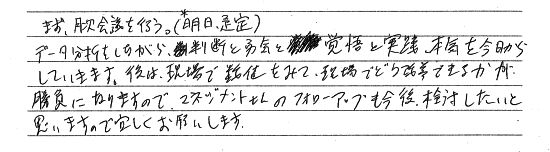 まず、朝会議を行う。(*明日、選定)
データ分析をしながら、判断と勇気と覚悟と実践、本気を今日から
していきます。後は、現場で数値をみて、現場でどう改善できるかが、
勝負になりますので、マネジメントさんのフォローアップも今後、検討したいと
思いますので宜しくお願いします。